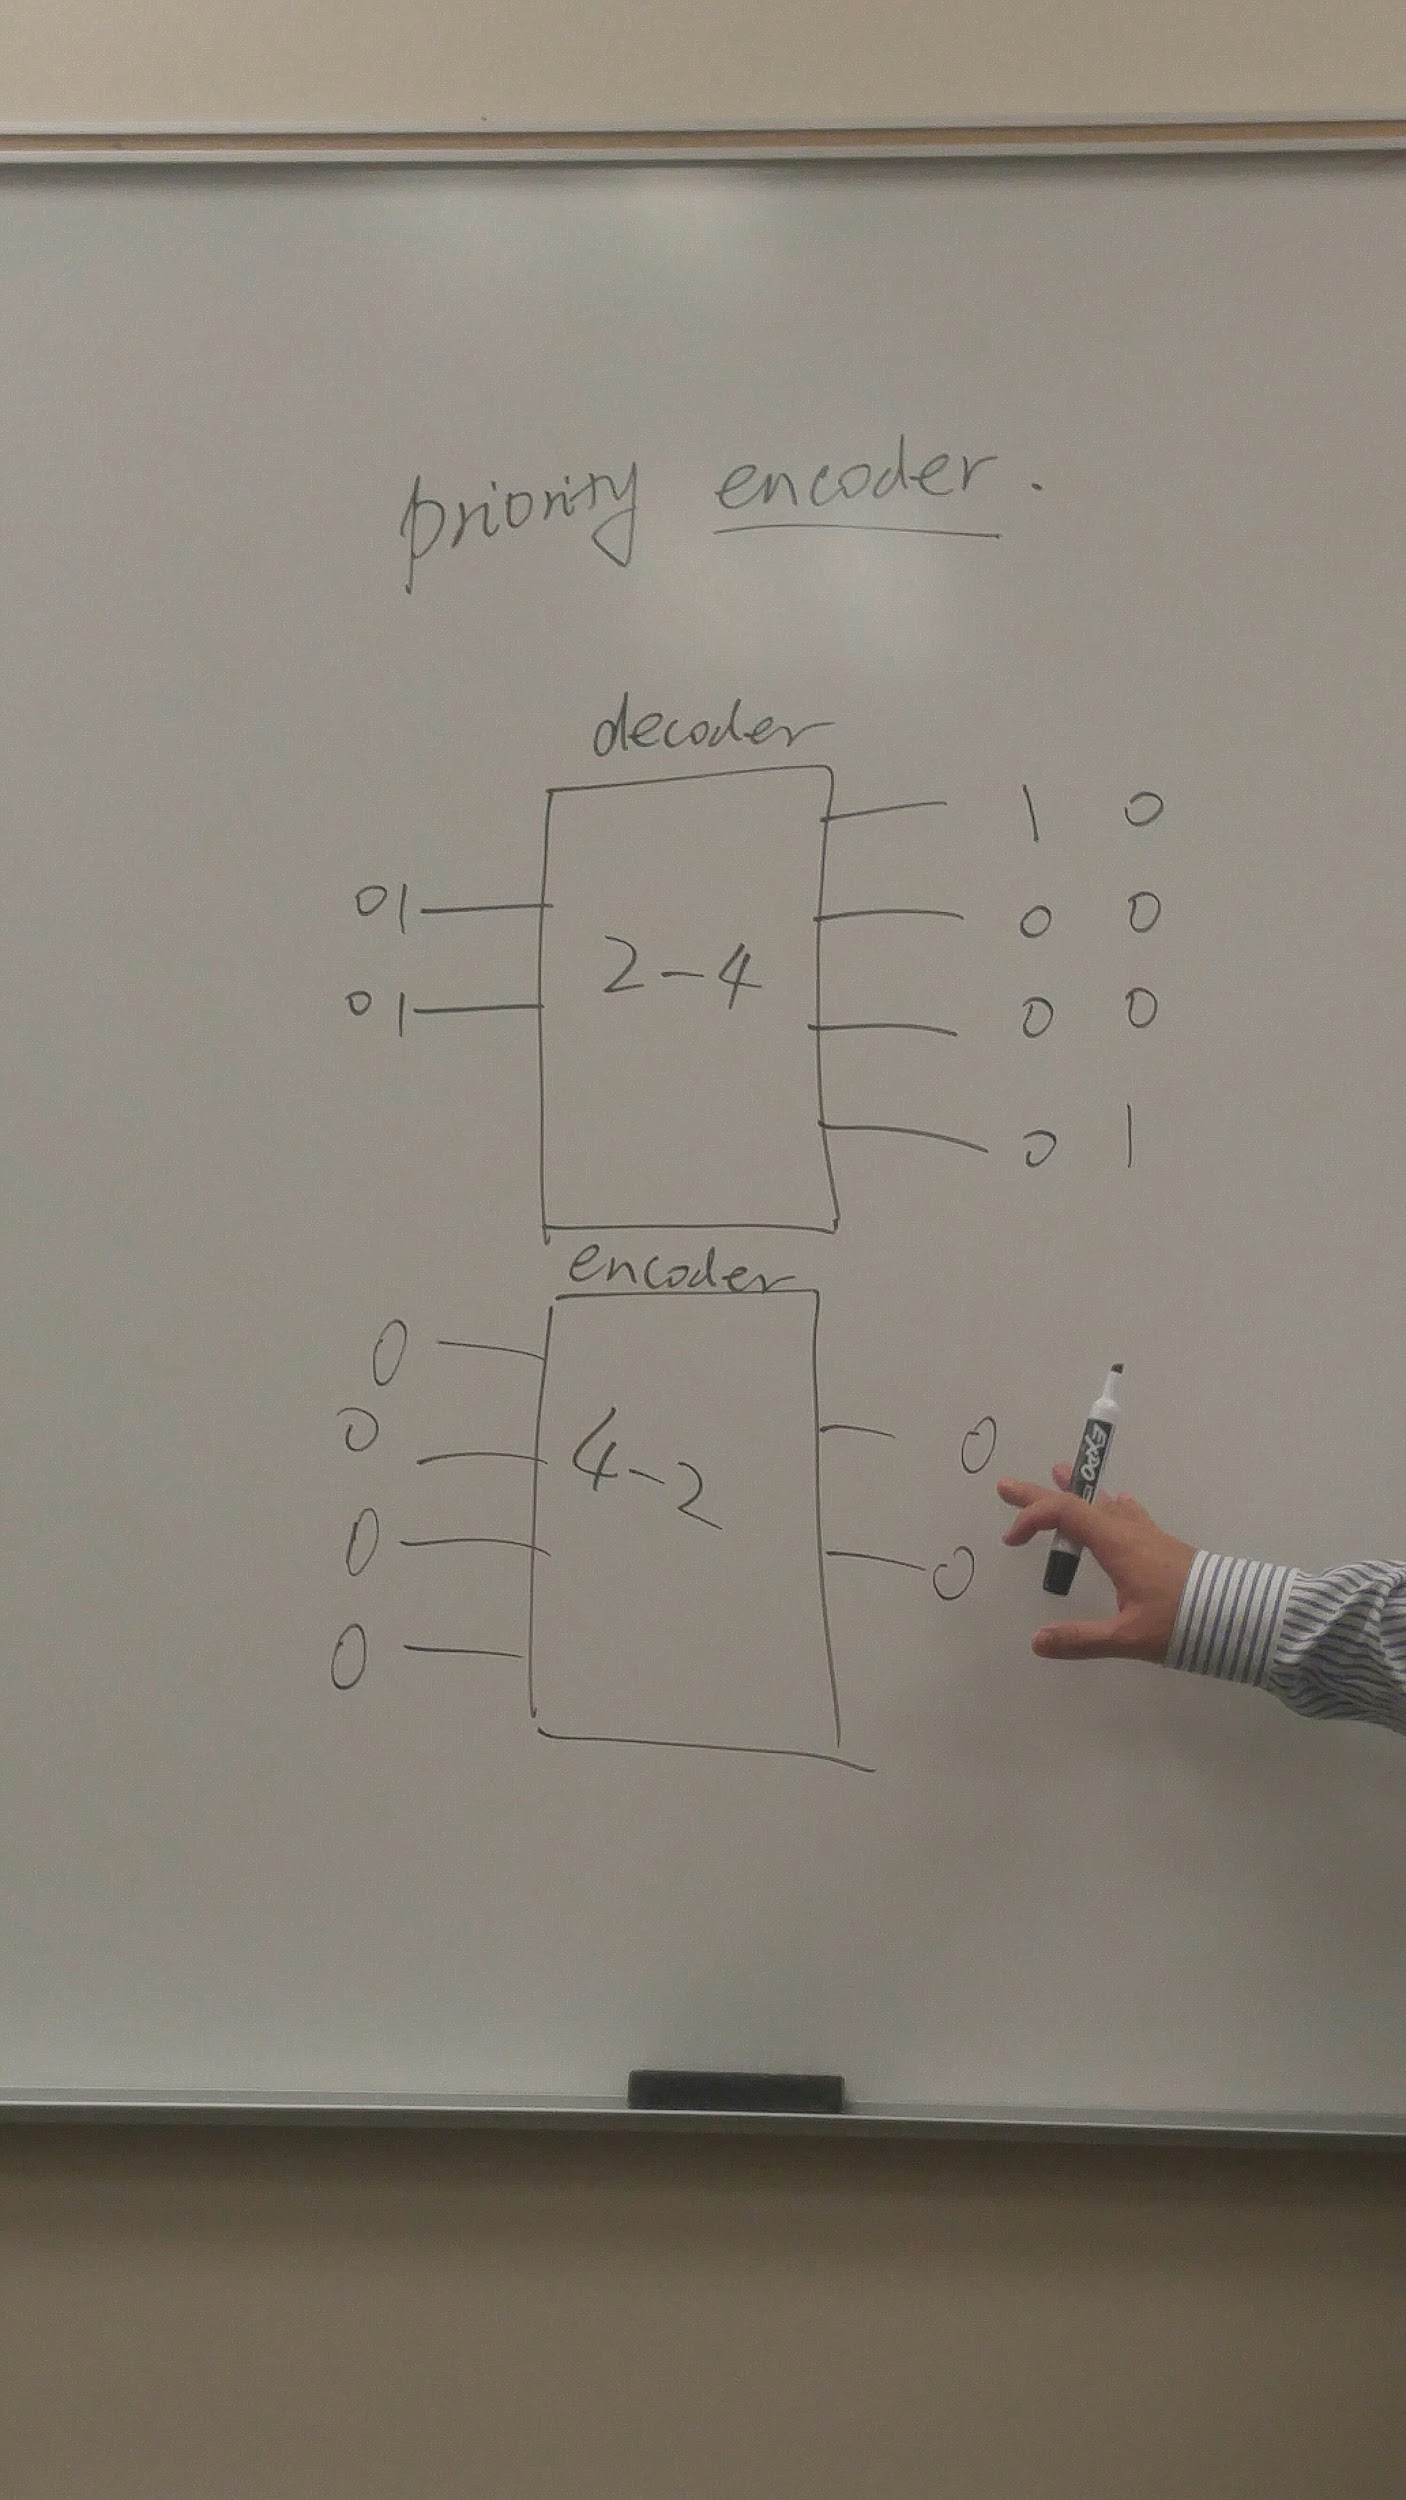 priority encoder.
decoder
1 0
01
0 0
2-4
01
0 0
0 1
encoder
0
0
4-2
0
0
0
0
EXPO